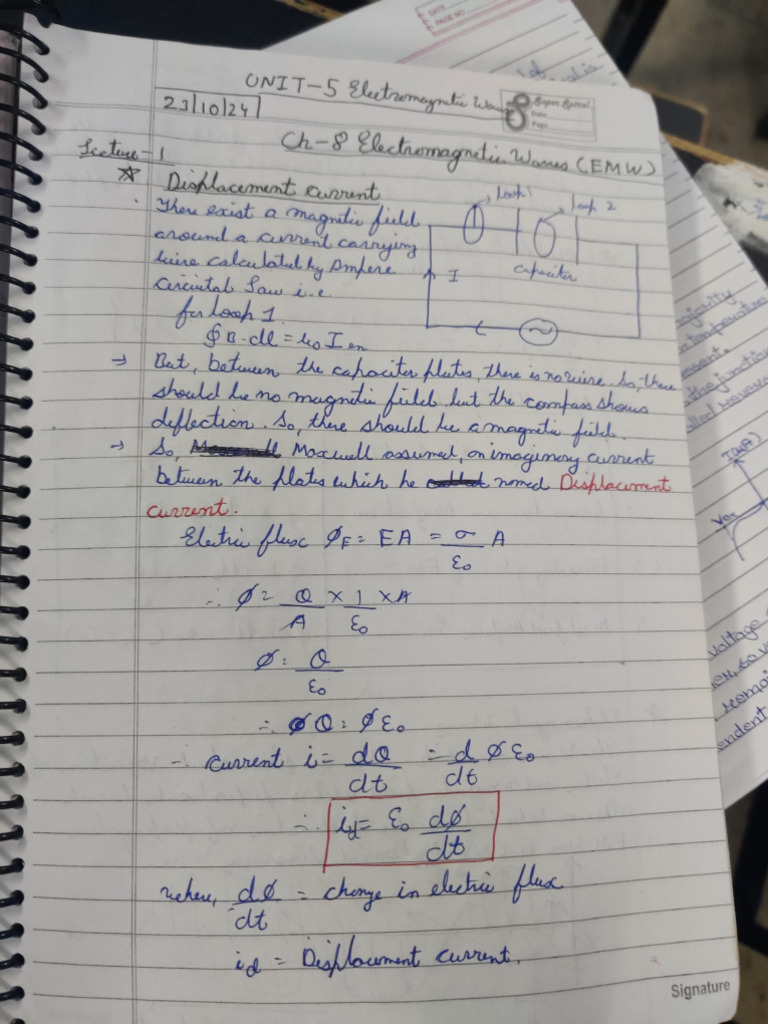 DATE
PAGE NO.
UNIT-5 Electromagnetic Waves
23/10/24
Super Spiral
Date
Page
Ch-8 Electromagnetic Waves (EMW)
Lecture-1
Displacement current
There exist a magnetic field
around a current carrying
wire calculated by Ampere
Circuital Law i.e
for loop 1
∮ B. dl = μ0 I en
Loop 1
Loop 2
Capacitor
I
→ But, between the capacitor plates, there is no wire. So, there
should be no magnetic field but the compass shows
deflection. So, there should be a magnetic field.
→ So, Maxwell assumed, an imaginery current
between the plates which he named Displacement
current.
Electric flux ΦE = EA = σ/ε0 A
∴ Φ = Q/A × 1/ε0 × A
Φ = Q/ε0
∴ Q = Φ ε0
∴ current i = dQ/dt = d/dt Φ ε0
∴ id = ε0 dΦ/dt
where, dΦ/dt = change in electric flux
id = Displacement current.
Signature
voltage